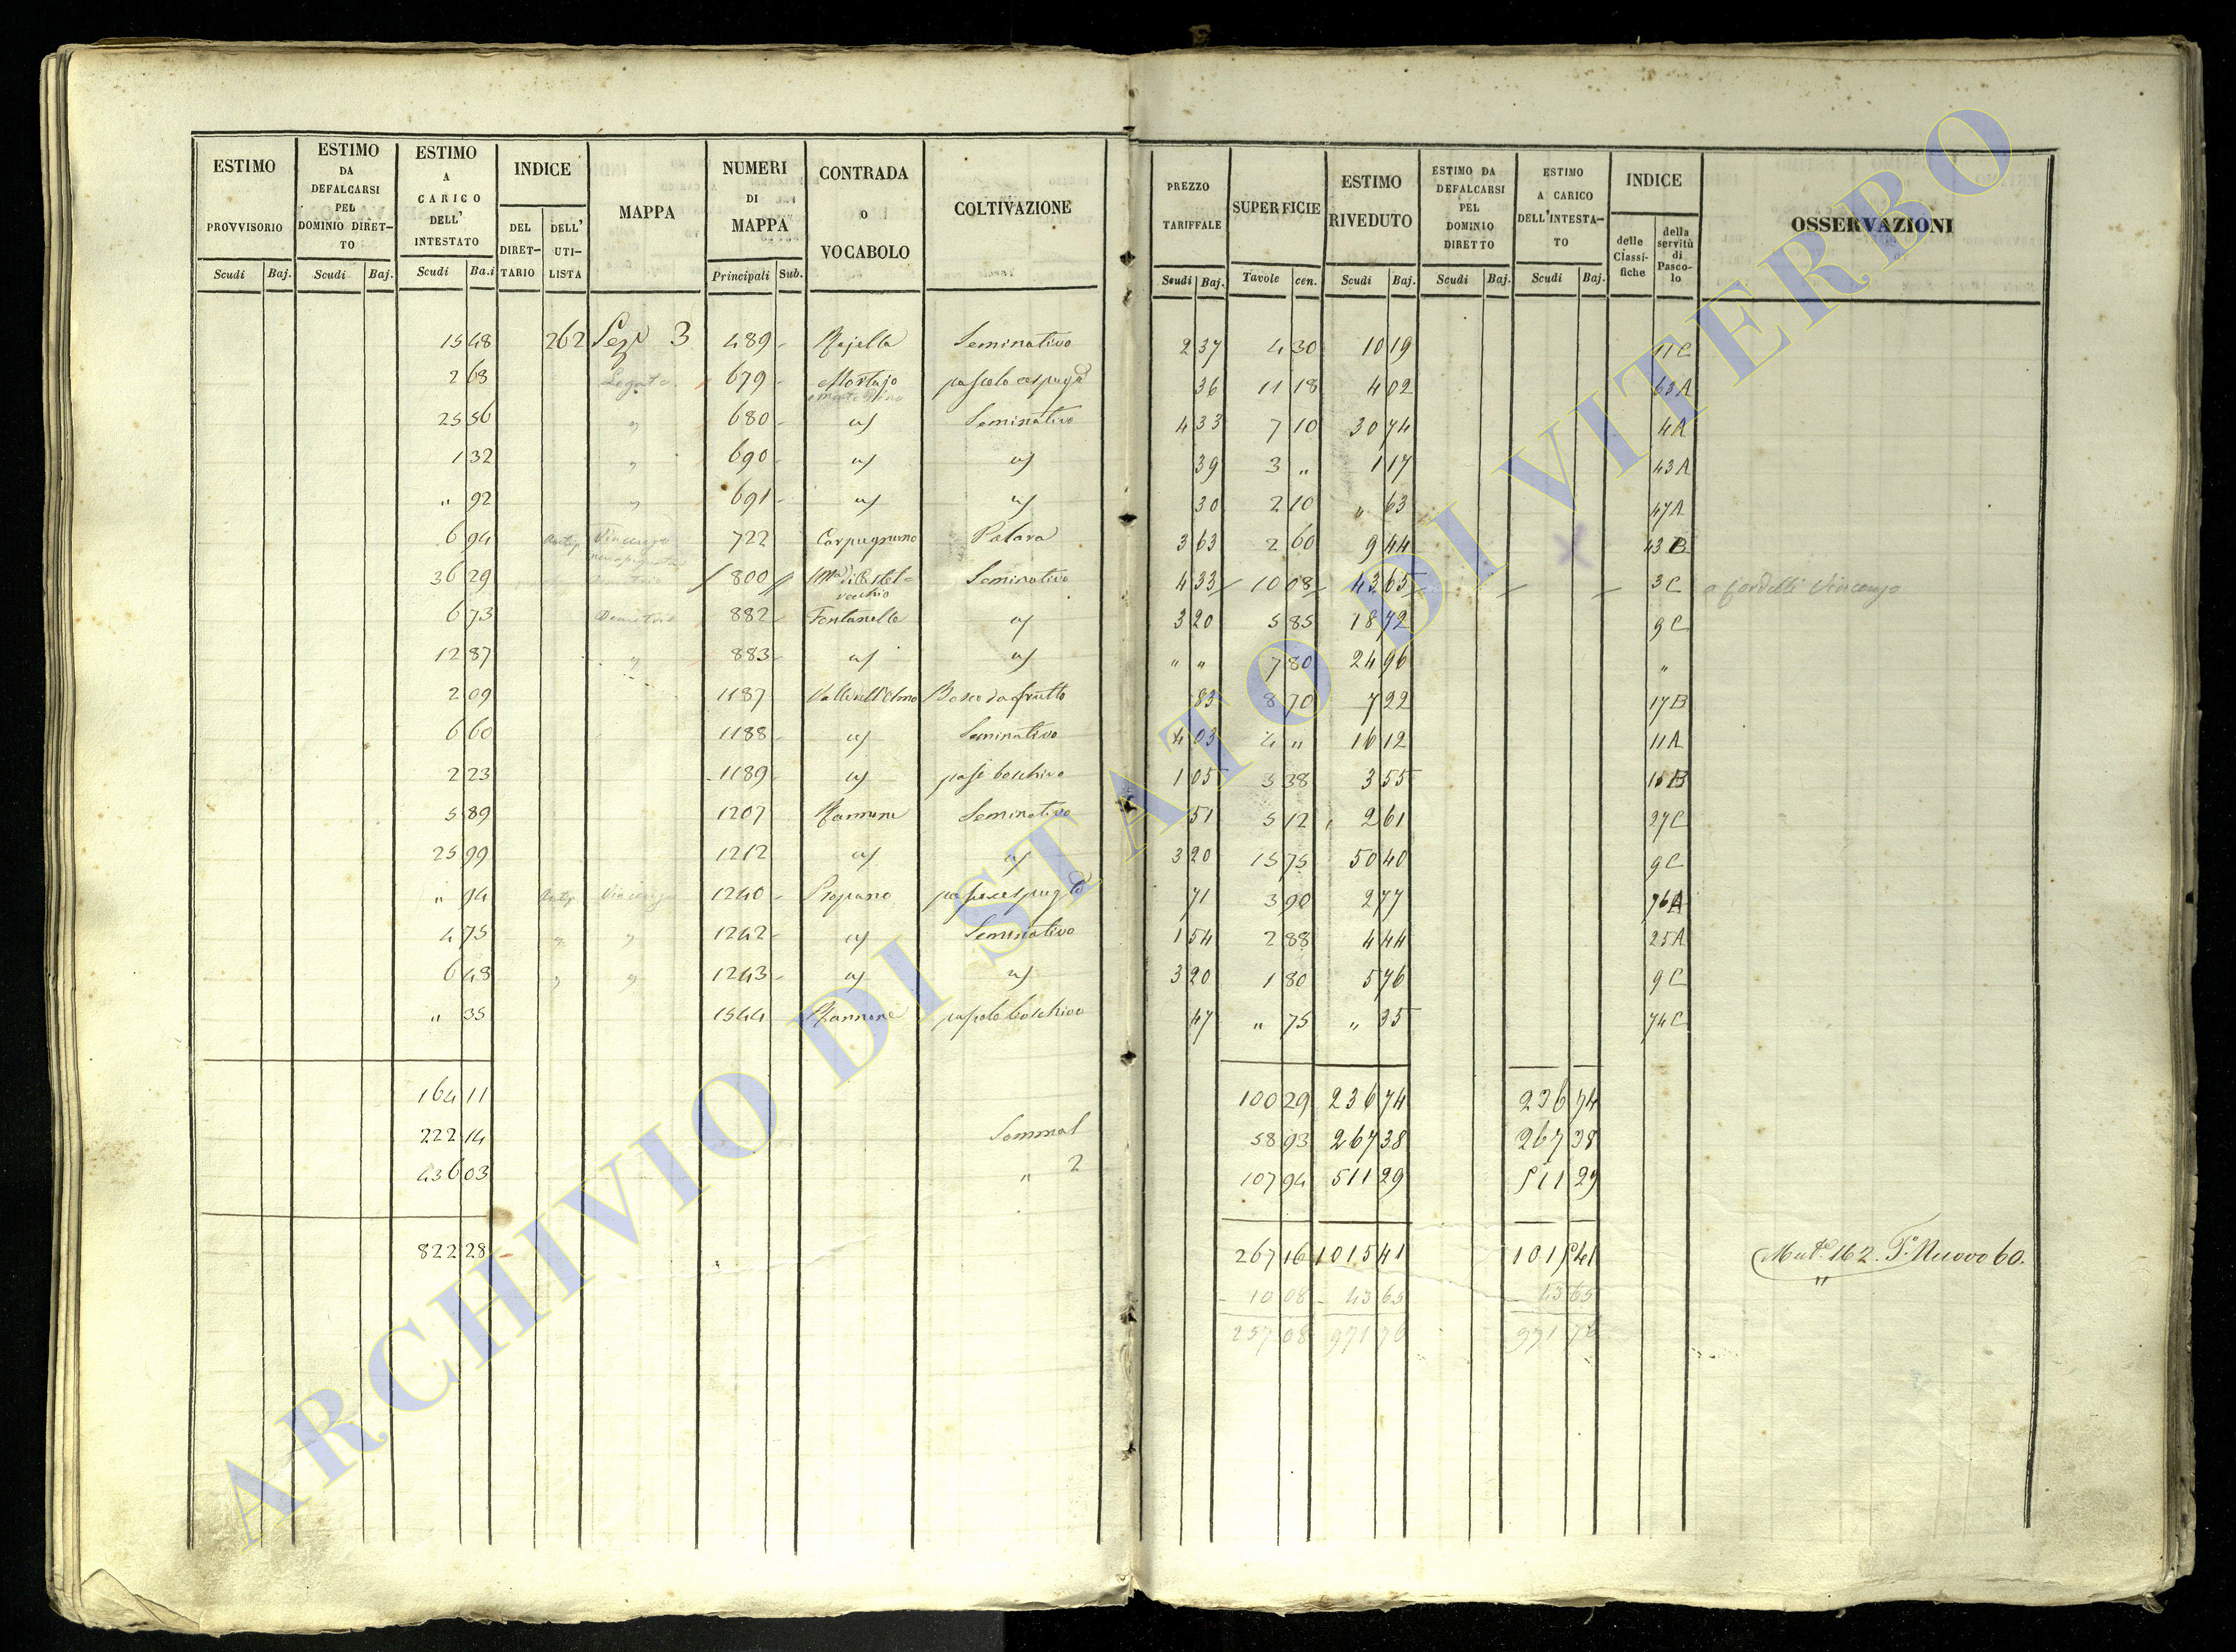 ESTIMO PROVVISORIO Scudi Baj.
ESTIMO DA DEFALCARSI PEL DOMINIO DIRETTO Scudi Baj.
ESTIMO A CARICO DELL' INTESTATO Scudi Ba.i
INDICE DEL DIRETTARIO DELL' UTILISTA
MAPPA
NUMERI DI MAPPA Principali Sub.
CONTRADA O VOCABOLO
COLTIVAZIONE
PREZZO TARIFFALE Scudi Baj.
SUPERFICIE Tavole cen.
ESTIMO RIVEDUTO Scudi Baj.
ESTIMO DA DEFALCARSI PEL DOMINIO DIRETTO Scudi Baj.
ESTIMO A CARICO DELL'INTESTATO Scudi Baj.
INDICE delle Classifiche della servitù di Pascolo
OSSERVAZIONI
15 48 262 Sez 3 489 Majella Seminativo 2 37 4 30 10 19 11 C
2 68 Legato 679 pascolo cespug 36 11 18 4 02 63 A
25 56 " 680 Seminativo 4 33 7 10 30 74 4 A
1 32 " 690 39 3 " 1 17 43 A
" 92 " 691 30 2 10 " 63 47 A
6 94 Vincenzo 722 3 63 2 60 9 44 43 B
36 29 800 Castelvecchio Seminativo 4 33 10 08 43 65 3 C a Cordelli Vincenzo
6 73 Demetrio 882 Fontanelle 3 20 5 85 18 72 9 C
12 87 " 883 " " 7 80 24 96 "
2 09 1187 Valle dell'Olmo Bosco da frutto 83 8 70 7 22 17 B
6 60 1188 Seminativo 4 03 4 " 16 12 11 A
2 23 1189 pasc boschivo 1 05 3 38 3 55 15 B
5 89 1207 Seminativo 51 5 12 2 61 27 C
25 99 1212 3 20 15 75 50 40 9 C
" 94 Vincenzo 1240 71 3 90 2 77 76 A
4 75 " " 1242 Seminativo 1 54 2 88 4 44 25 A
6 48 " " 1243 3 20 1 80 5 76 9 C
" 35 1544 pascolo boschivo 47 " 75 " 35 74 C
164 11 100 29 236 74 236 74
222 14 Somma 1 58 93 267 38 267 38
436 03 " 2 107 94 511 29 511 29
822 28 267 16 1015 41 1015 41 Mut.e 162. T.o Nuovo 60.
10 08 43 65 43 65
257 08 971 76 971 76
ARCHIVIO DI STATO DI VITERBO